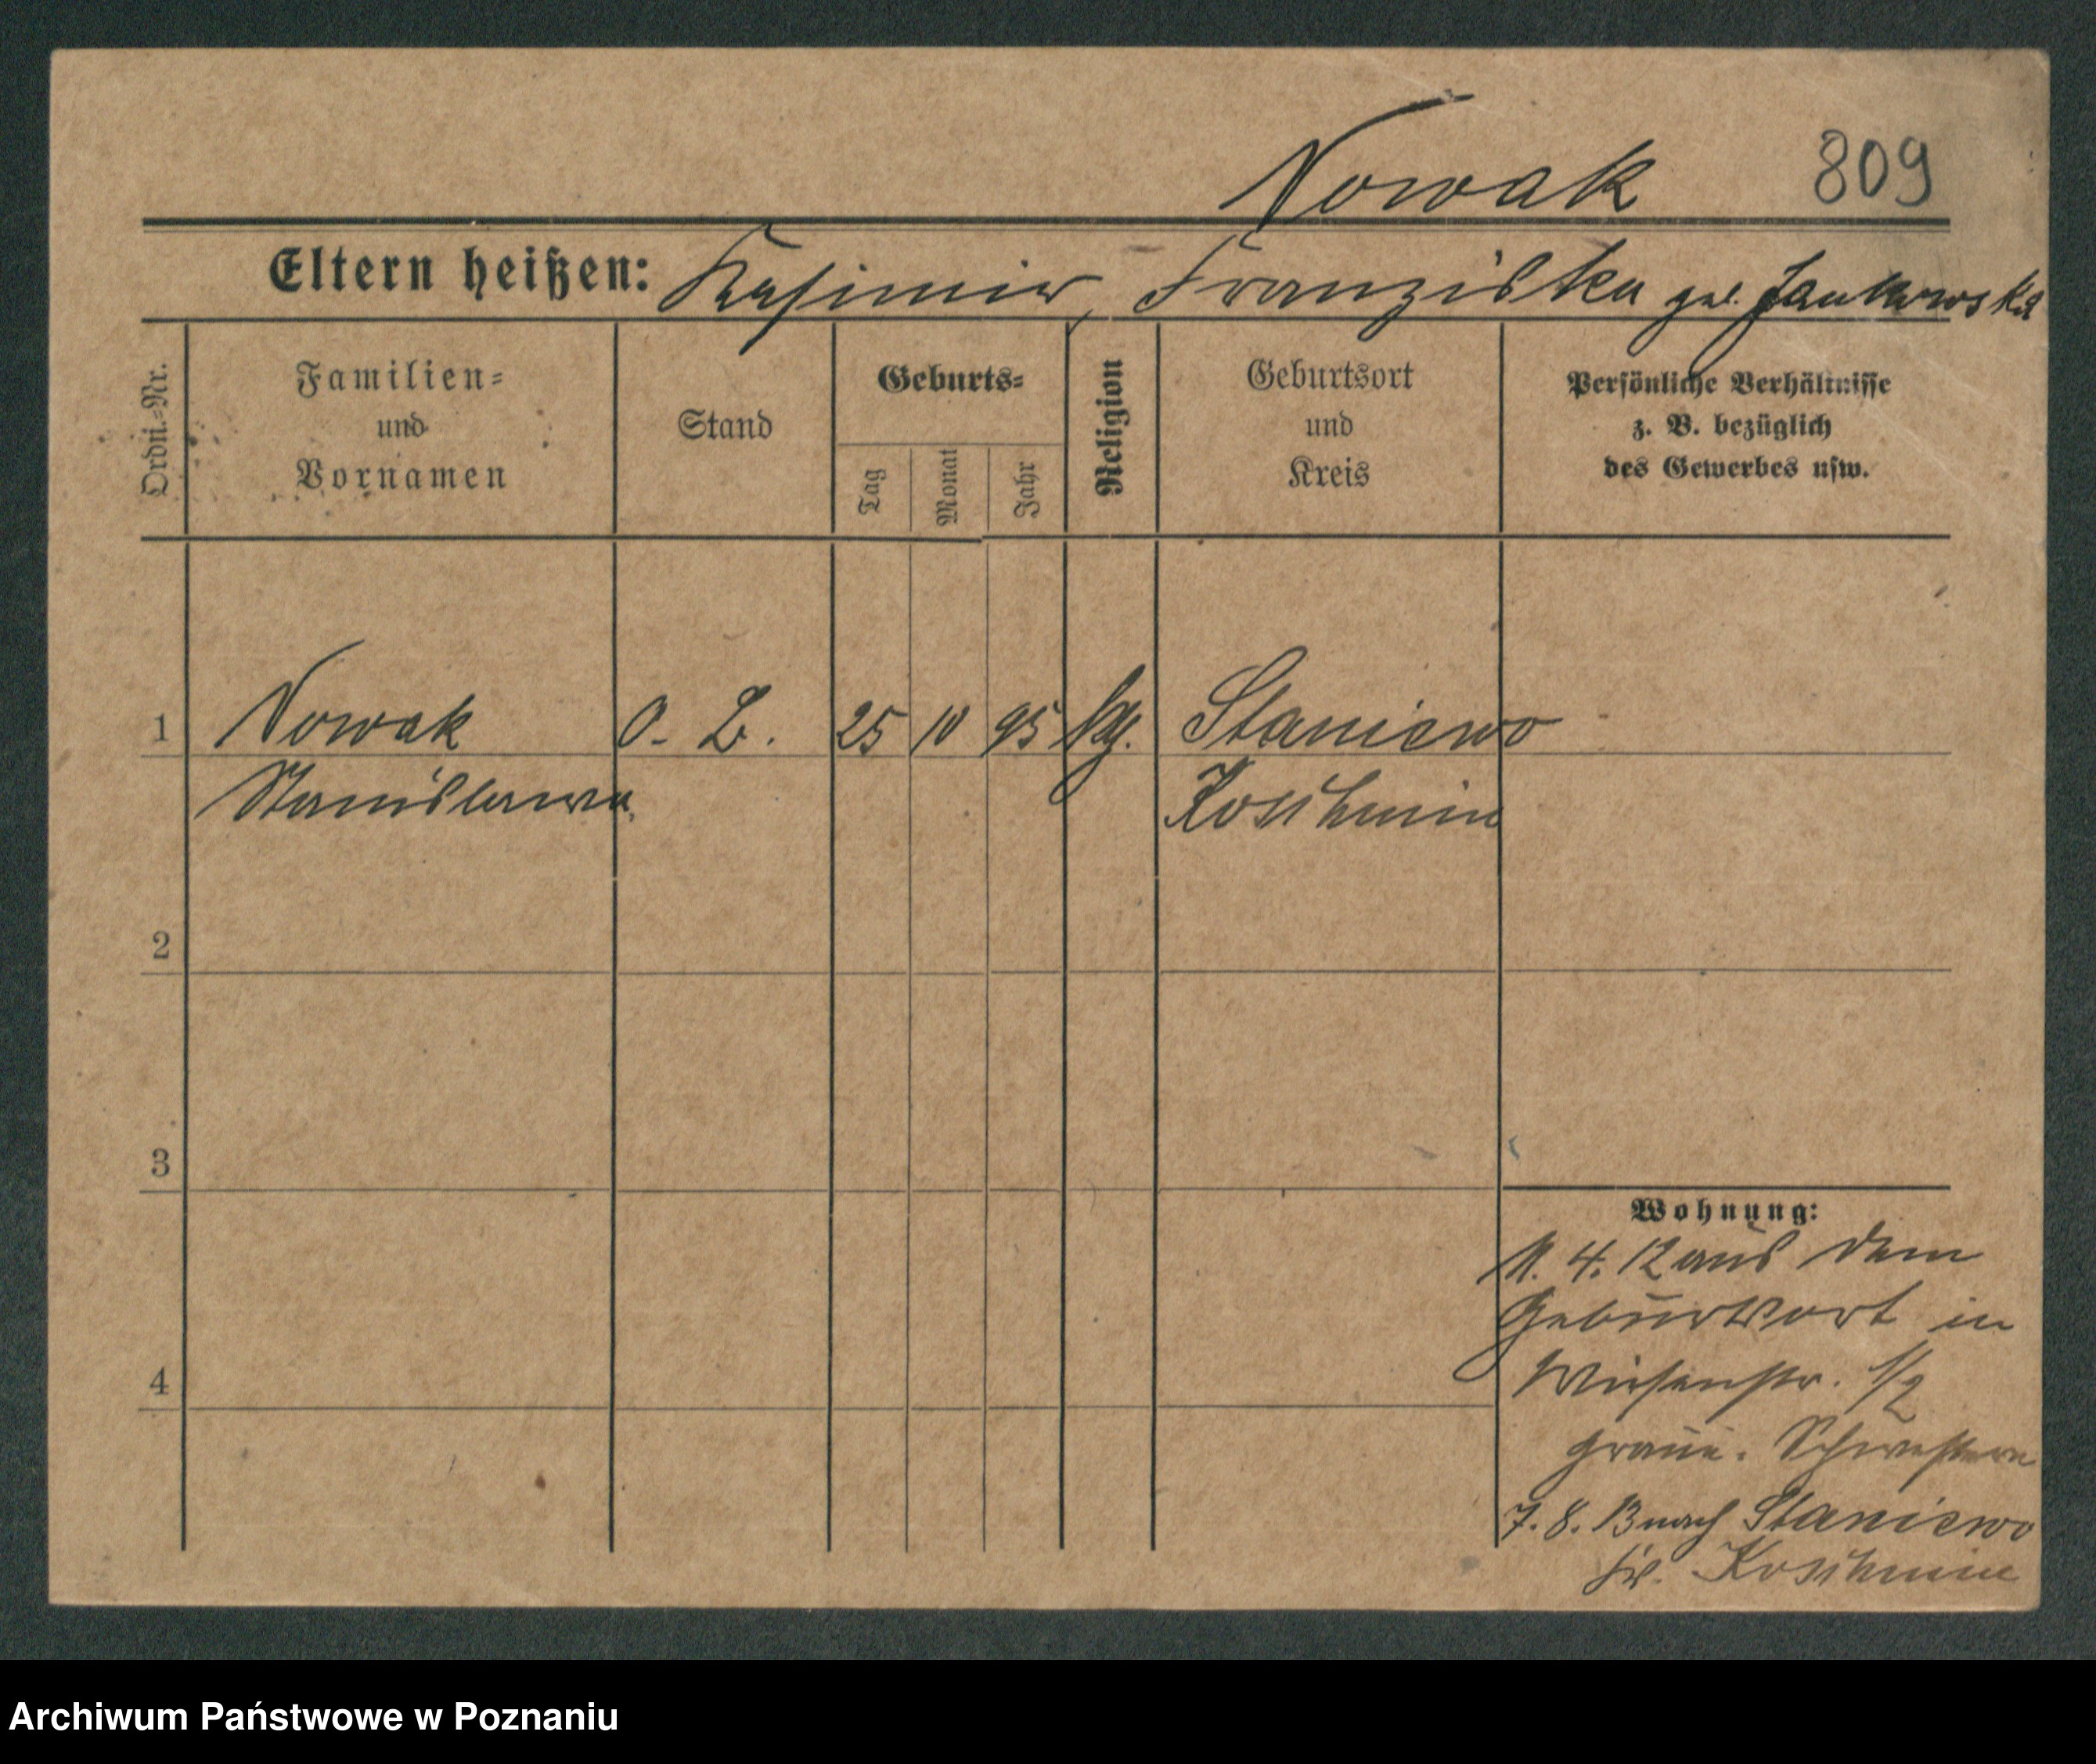 Nowak 809
Eltern heißen: Kasimir, Franziska geb. Jankowska
Ordn.=Nr.
Familien=
und
Vornamen
Stand
Geburts=
Tag
Monat
Jahr
Religion
Geburtsort
und
Kreis
Persönliche Verhältnisse
z. B. bezüglich
des Gewerbes usw.
1 Nowak 25 10 95 Staniewo
Stanislawa Koschmin
2
3
4
Wohnung:
11. 4. 12 aus dem
Geburtsort in
Wiesenstr. 1/2
graue. Schwestern
7. 8. 13 nach Staniewo
Koschmin
Archiwum Państwowe w Poznaniu